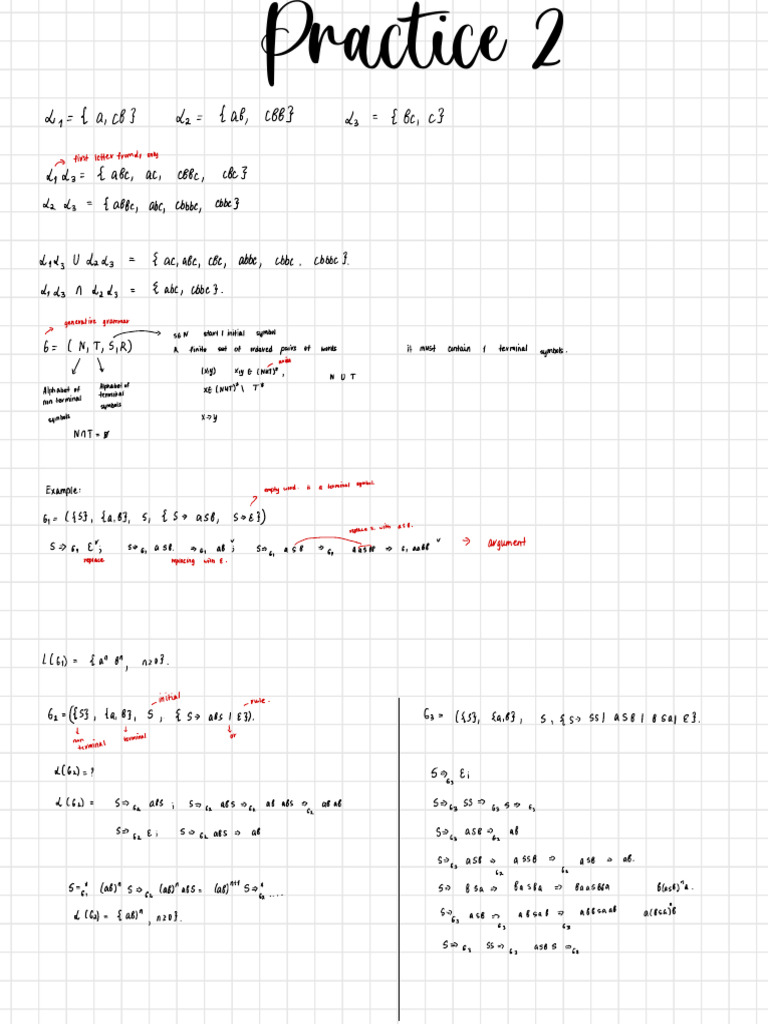 Practice 2
L₁ = { a, cb }   L₂ = { ab, cbb }   L₃ = { bc, c }
first letter from L₁ only
L₁ L₃ = { abc, ac, cbbc, cbc }
L₂ L₃ = { abbc, abc, cbbbc, cbbc }
L₁L₃ ∪ L₂L₃ = { ac, abc, cbc, abbc, cbbc, cbbbc }.
L₁L₃ ∩ L₂L₃ = { abc, cbbc }.
generative grammar
G = ( N, T, S, R)
S ∈ N start / initial symbol
A finite set of ordered pairs of words   it must contain 1 terminal symbols.
(x,y)   x,y ∈ (N∪T)*,   N ∪ T
x ∈ (N∪T)* \ T*
x → y
Alphabet of non terminal symbols
Alphabet of terminal symbols
N∩T = ∅
Example:
empty word. is a terminal symbol.
G₁ = ({S}, {a,b}, S, { S → aSb, S → ε})
replace S with aSb.
S ⇒G₁ ε ;   S ⇒G₁ aSb ⇒G₁ ab ;   S ⇒G₁ aSb ⇒G₁ aaSbb ⇒G₁ aabb   → argument
replace   replacing with ε.
L(G₁) = { aⁿ bⁿ, n≥0 }.
initial   rule.
G₂ = ({S}, {a,b}, S, { S → abS | ε}).
non terminal   terminal   or
L(G₂) = ?
L(G₂) = S ⇒G₂ abS ; S ⇒G₂ abS ⇒G₂ ab abS ⇒G₂ abab
S ⇒G₂ ε ;   S ⇒G₂ abS ⇒ ab
S ⇒G₂* (ab)ⁿ S ⇒G₂ (ab)ⁿ abS = (ab)ⁿ⁺¹ S ⇒G₂* ....
L(G₂) = { (ab)ⁿ, n≥0 }.
G₃ = ({S}, {a,b}, S, { S → SS | aSb | bSa | ε }.
S ⇒G₃ ε ;
S ⇒G₃ SS ⇒G₃ S ⇒G₃
S ⇒G₃ aSb ⇒G₂ ab
S ⇒G₃ aSb ⇒G₂ aSSb ⇒G₂ aSb ⇒ ab.
S ⇒ bSa ⇒ baSba ⇒ baaSbba   b(aSb)ⁿa.
S ⇒G₃ aSb ⇒G₃ abSab ⇒G₃ abbSaab   a(bSa)ⁿb
S ⇒G₃ SS ⇒G₃ aSbS ⇒G₃